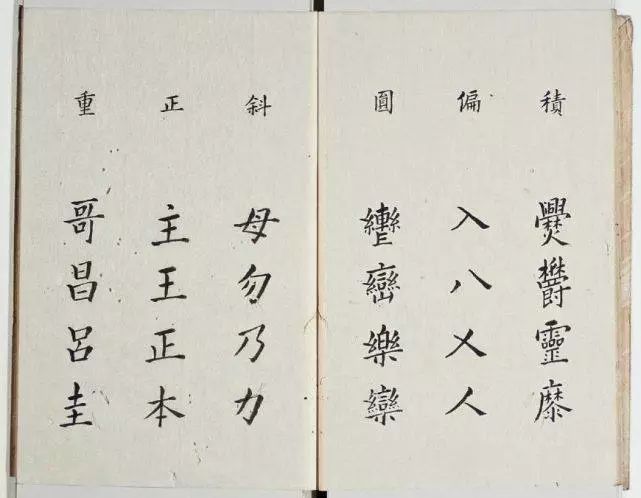 積 爨欝靈
偏 入八乂人
圓 轡巒樂欒
斜 母勿乃力
正 主王正本
重 哥昌呂圭